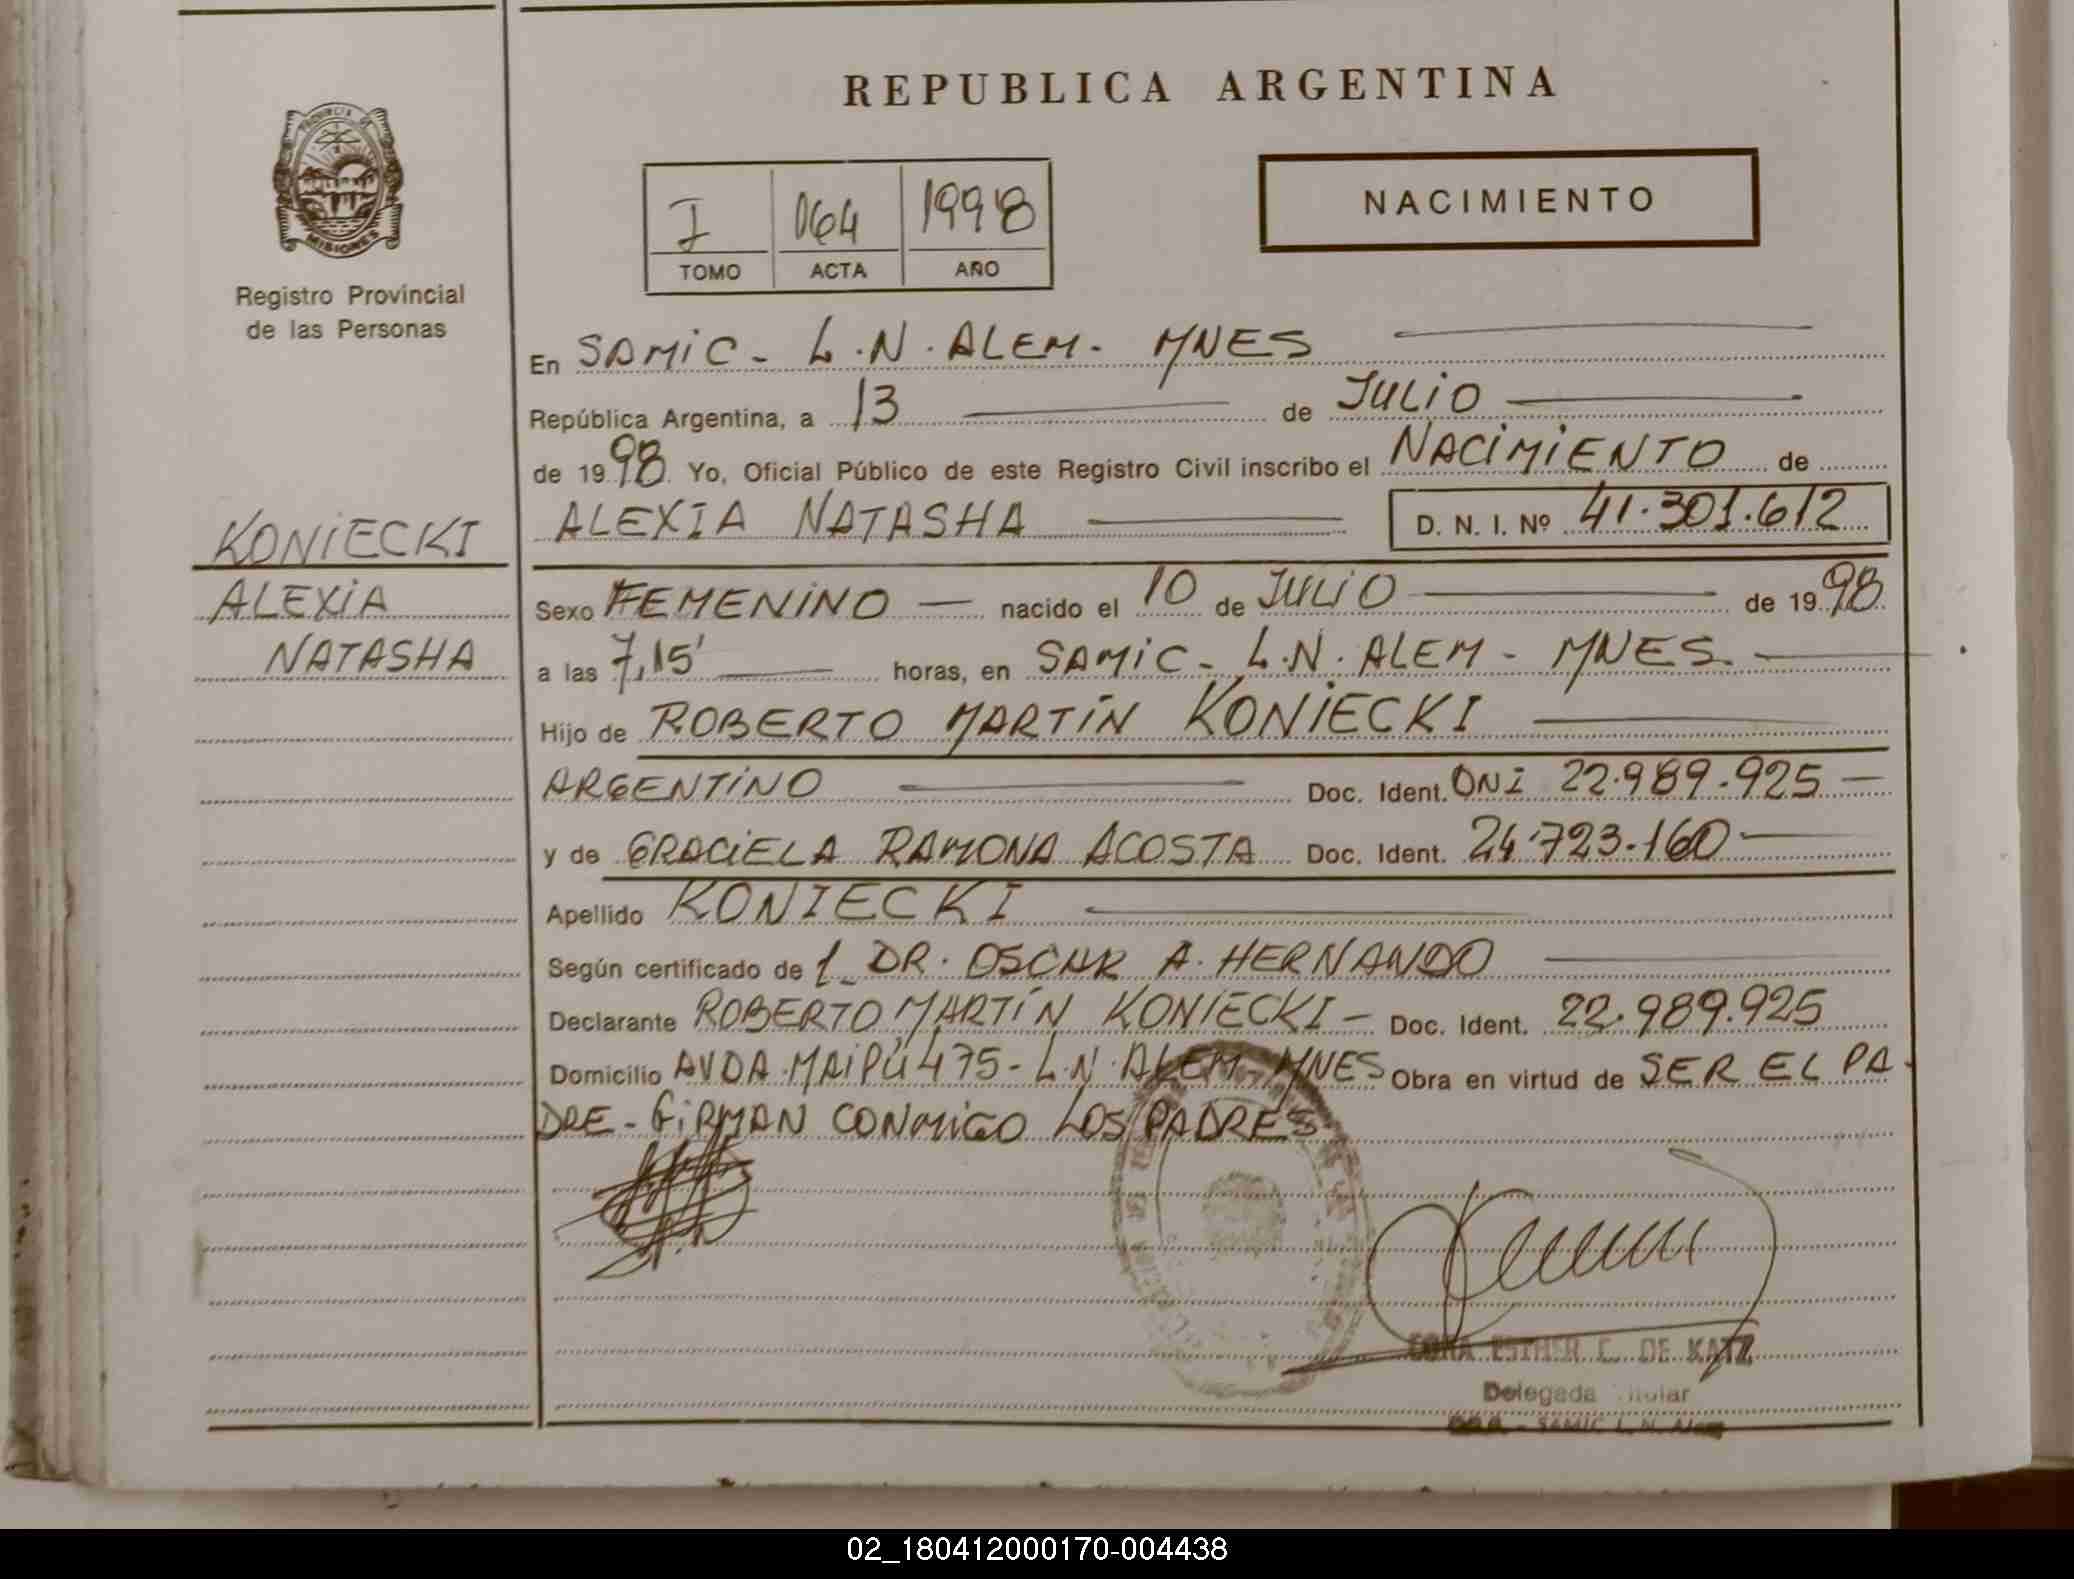 REPUBLICA ARGENTINA
PROVINCIA DE
MISIONES
Registro Provincial
de las Personas
I 064 1998
TOMO ACTA AÑO
NACIMIENTO
En SAMIC - L.N. ALEM - MNES
República Argentina, a 13 de JULIO
de 1998 Yo, Oficial Público de este Registro Civil inscribo el NACIMIENTO de
ALEXIA NATASHA D. N. I. Nº 41.301.612
KONIECKI
ALEXIA
NATASHA
Sexo FEMENINO nacido el 10 de JULIO de 1998
a las 7,15' horas, en SAMIC - L.N. ALEM - MNES.
Hijo de ROBERTO MARTÍN KONIECKI
ARGENTINO Doc. Ident. DNI 22.989.925
y de GRACIELA RAMONA ACOSTA Doc. Ident. 24.723.160
Apellido KONIECKI
Según certificado de 1_ DR. OSCAR A. HERNANDO
Declarante ROBERTO MARTÍN KONIECKI - Doc. Ident. 22.989.925
Domicilio AVDA. MAIPÚ 475 - L.N. ALEM - MNES Obra en virtud de SER EL PA-
DRE - FIRMAN CONMIGO LOS PADRES
ESTHER C. DE KATZ
Delegada Titular
SAMIC L. N. Alem
02_180412000170-004438